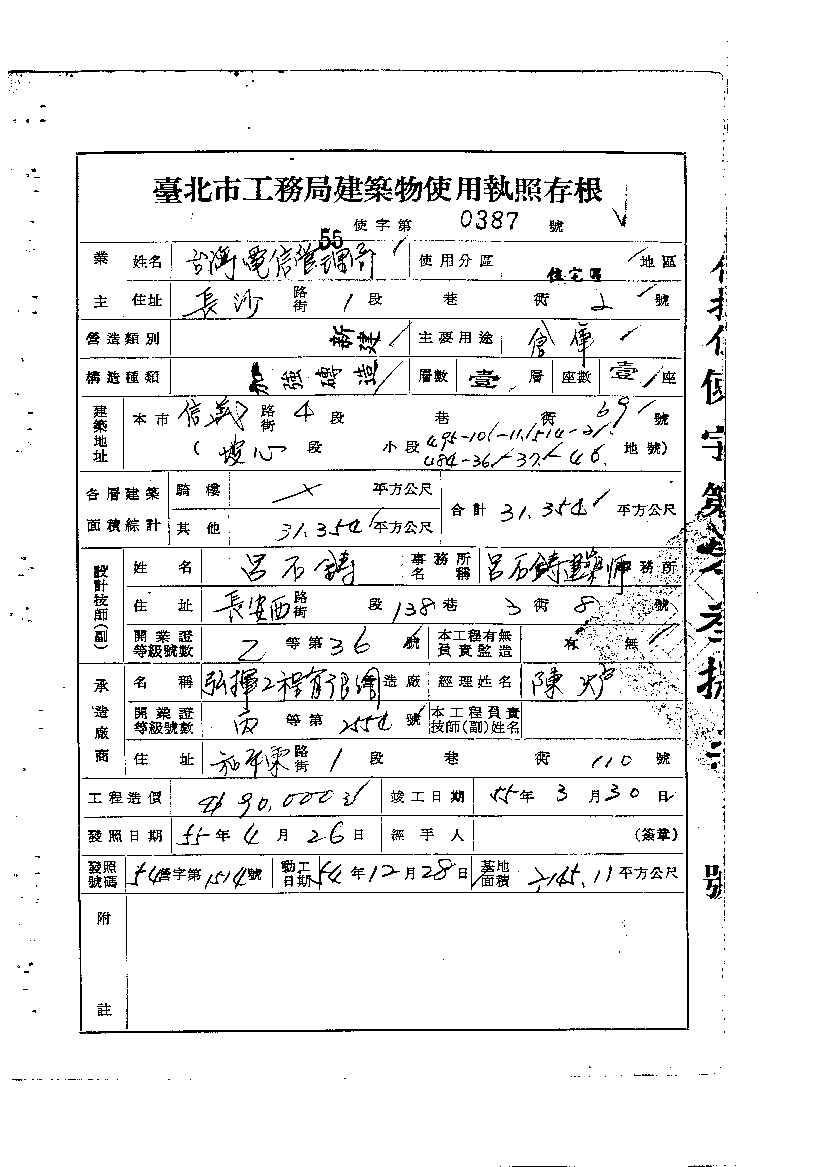 臺北市工務局建築物使用執照存根
55使字第 0387 號
業主 姓名 台灣電信管理局 使用分區 住宅區 地區
住址 長沙 路街 1 段 巷 街 2 號
營造類別 新建 主要用途 倉庫
構造種類 加強磚造 層數 壹 層 座數 壹 座
建築地址 本市 信義 路街 4 段 巷 街 69 號
(坡心 段 小段 地號)
各層建築面積綜計 騎樓 平方公尺 合計 31.354 平方公尺
其他 31.354 平方公尺
設計技師(副) 姓名 呂石鑄 事務所名稱 呂石鑄建築師 務所
住址 長安西 路街 段 138 巷 3 街 8 號
開業證等級號數 乙 等第 36 號 本工程有無負責監造 有 無
承造廠商 名稱 弘揮工程有限 造廠 經理姓名 陳
開業證等級號數 丙 等第 2554 號 本工程負責技師(副)姓名
住址 路街 1 段 巷 街 110 號
工程造價 90,000 竣工日期 55 年 3 月 30 日
發照日期 55 年 4 月 26 日 經手人 (簽章)
發照號碼 54營字第 1514 號 動工日期 54 年 12 月 28 日 基地面積 2,145.11 平方公尺
附註
使字第
號